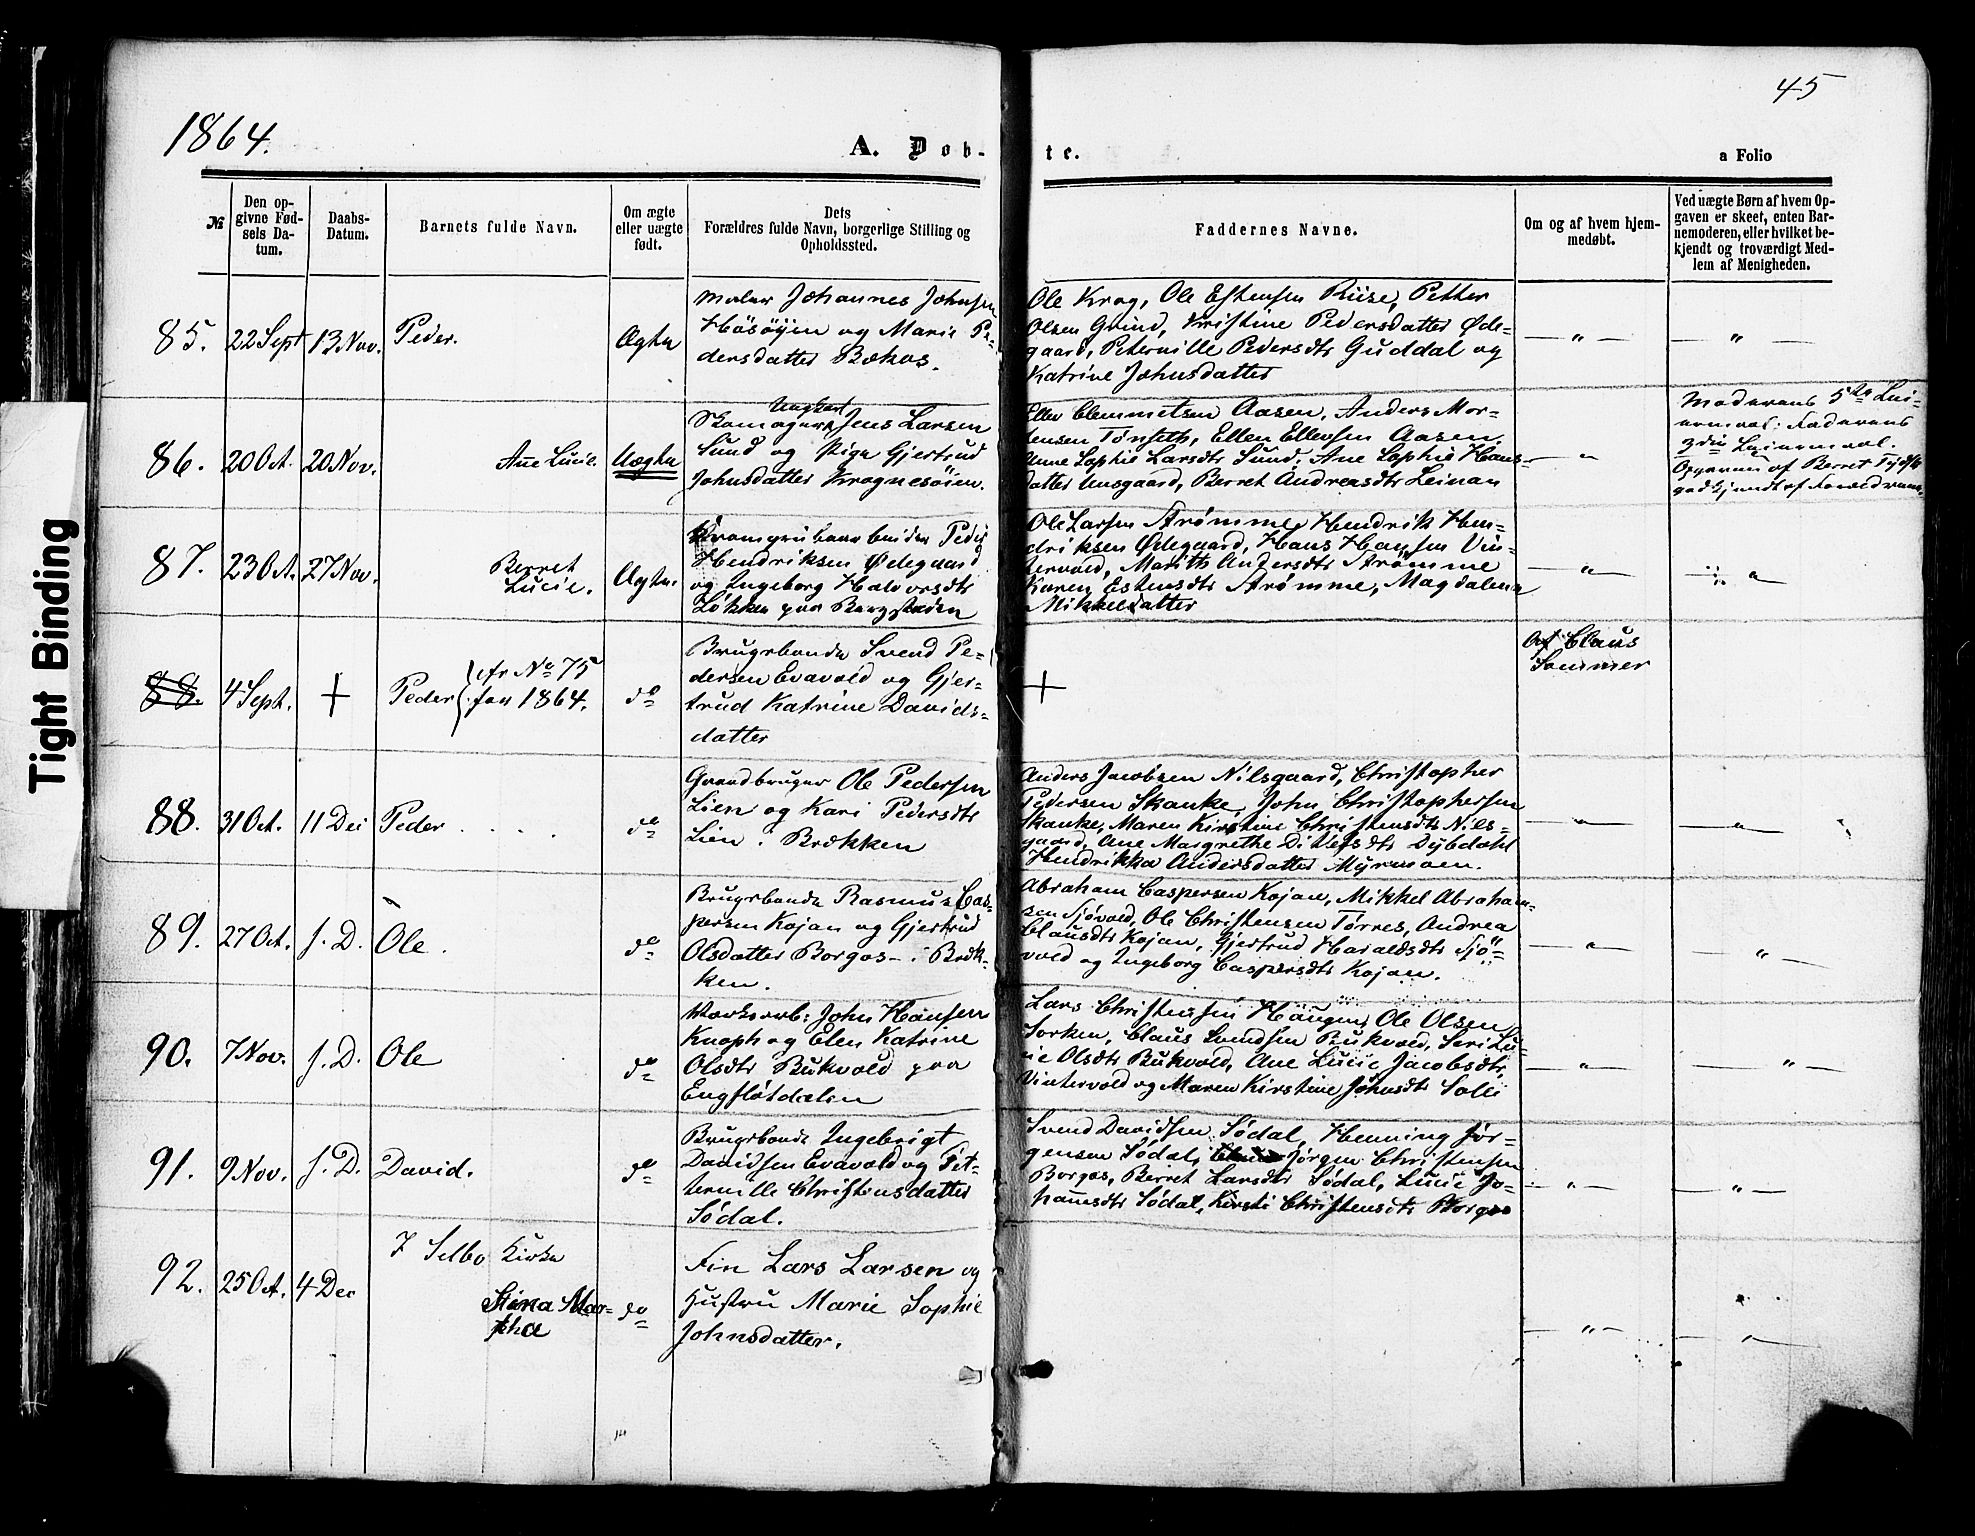 45
1864.
A. Døb-
te.
a Folio
№
Den op-
givne Fød-
sels Da-
tum.
Daabs-
Datum.
Barnets fulde Navn.
Om ægte
eller uægte
født.
Dets
Forældres fulde Navn, borgerlige Stilling og
Opholdssted.
Faddernes Navne.
Om og af hvem hjem-
medøbt.
Ved uægte Børn af hvem Op-
gaven er skeet, enten Bar-
nemoderen, eller hvilket be-
kjendt og troværdigt Med-
lem af Menigheden.
85. 22 Sept 13 Nov. Peder. Ægte
Maler Johannes Johnsen
Hösöyen og Marie Pe-
dersdatter Bækos.
Ole Krog, Ole Estensen Riise, Petter
Olsen Grind, Kristine Pedersdatter Øde-
gaard, Peternille Pedersdtr Guddal og
Katrine Johnsdatter
— " — — " —
86. 20 Oct. 20 Nov. Ane Lucie. Uægte
Ungkarl
Skomager Jens Larsen
Sund og Pige Gjertrud
Johnsdatter Krognesöien.
Eller Clemmetsen Aasen, Anders Mor-
tensen Tønseth, Ellen Ellevsen Aasen,
Anne Sophie Larsdtr Sund, Ane Sophie Hans-
datter Unsgaard, Berret Andreasdtr Leinan
— " —
Moderens 5te Lei-
ermaal: Faderens
Leiermaal.
Opgaven af Berret
godkjendt af Forældrene.
87. 23 Oct. 27 Nov. Berret
Lucie. Ægte.
Peder
Hendriksen Ødegaard
og Ingeborg Halvorsdtr
Løkken paa Bergstaden
Ole Larsen Strømme, Hendrik Hen-
driksen Ødegaard, Hans Hansen Vin-
tervold, Marith Andersdtr Strømme
Karen Estensdtr Strømme, Magdalena
Mikkelsdatter
— " — — " —
88. 4 Sept. + Peder { cfr No 75
for 1864. do
Brugsbonde Svend Pe-
dersen Evavold og Gjer-
trud Katrine Davids-
datter
+
Af Claus
Sommer
88. 31 Oct. 11 Dec Peder . . . . do
Gaardbruger Ole Pedersen
Lien og Kari Pedersdtr
Lien i Brækken
Anders Jacobsen Nilsgaard, Christopher
Pedersen Skanke, John Christophersen
Skanke, Maren Kirstine Christensdtr Nils-
gaard, Ane Margrethe Ditlefsdtr Dybdahl
Hendrikka Andersdatter Myrmoen.
— " — — " —
89. 27 Oct. s. D. Ole. do
Brugsbonde Rasmus Cas-
persen Kojan og Gjertrud
Olsdatter Borgos — i Bræk-
ken.
Abraham Caspersen Kojan, Mikkel Abraham-
sen Sjövold, Ole Christensen Törres, Andrea
Clausdtr Kojan, Gjertrud Haraldsdtr Sjö-
vold og Ingeborg Caspersdtr Kojan.
— " — — " —
90. 7 Nov. s. D. Ole do
Værksarb: John Hansen
Knoph og Elen Katrine
Olsdtr Bukvold paa
Engfløtdalen
Lars Christensen Haugen, Ole Olsen
Sorken, Claus Svendsen Bukvold, Seri Lu-
cie Olsdtr Bukvold, Ane Lucie Jacobsdtr,
Vintervold og Maren Kirstine Johnsdtr Solli
— " — — " —
91. 9 Nov. s. D. David. do
Brugsbonde Ingebrigt
Davidsen Evavold og Pet-
ternille Christensdatter
Södal.
Svend Davidsen Södal, Henning Jör-
gensen Södal, Jörgen Christensen
Borgos, Berret Larsdtr Södal, Lucie Jo-
hannsdtr Södal, Kirsti Christensdtr Borgos
— " — — " —
92. 25 Oct. 4 Dec I Selbo Kirke
Stina Mar-
tha do
Fin Lars Larsen og
Hustru Marie Sophie
Johnsdatter.
— " — — " —
Tight Binding